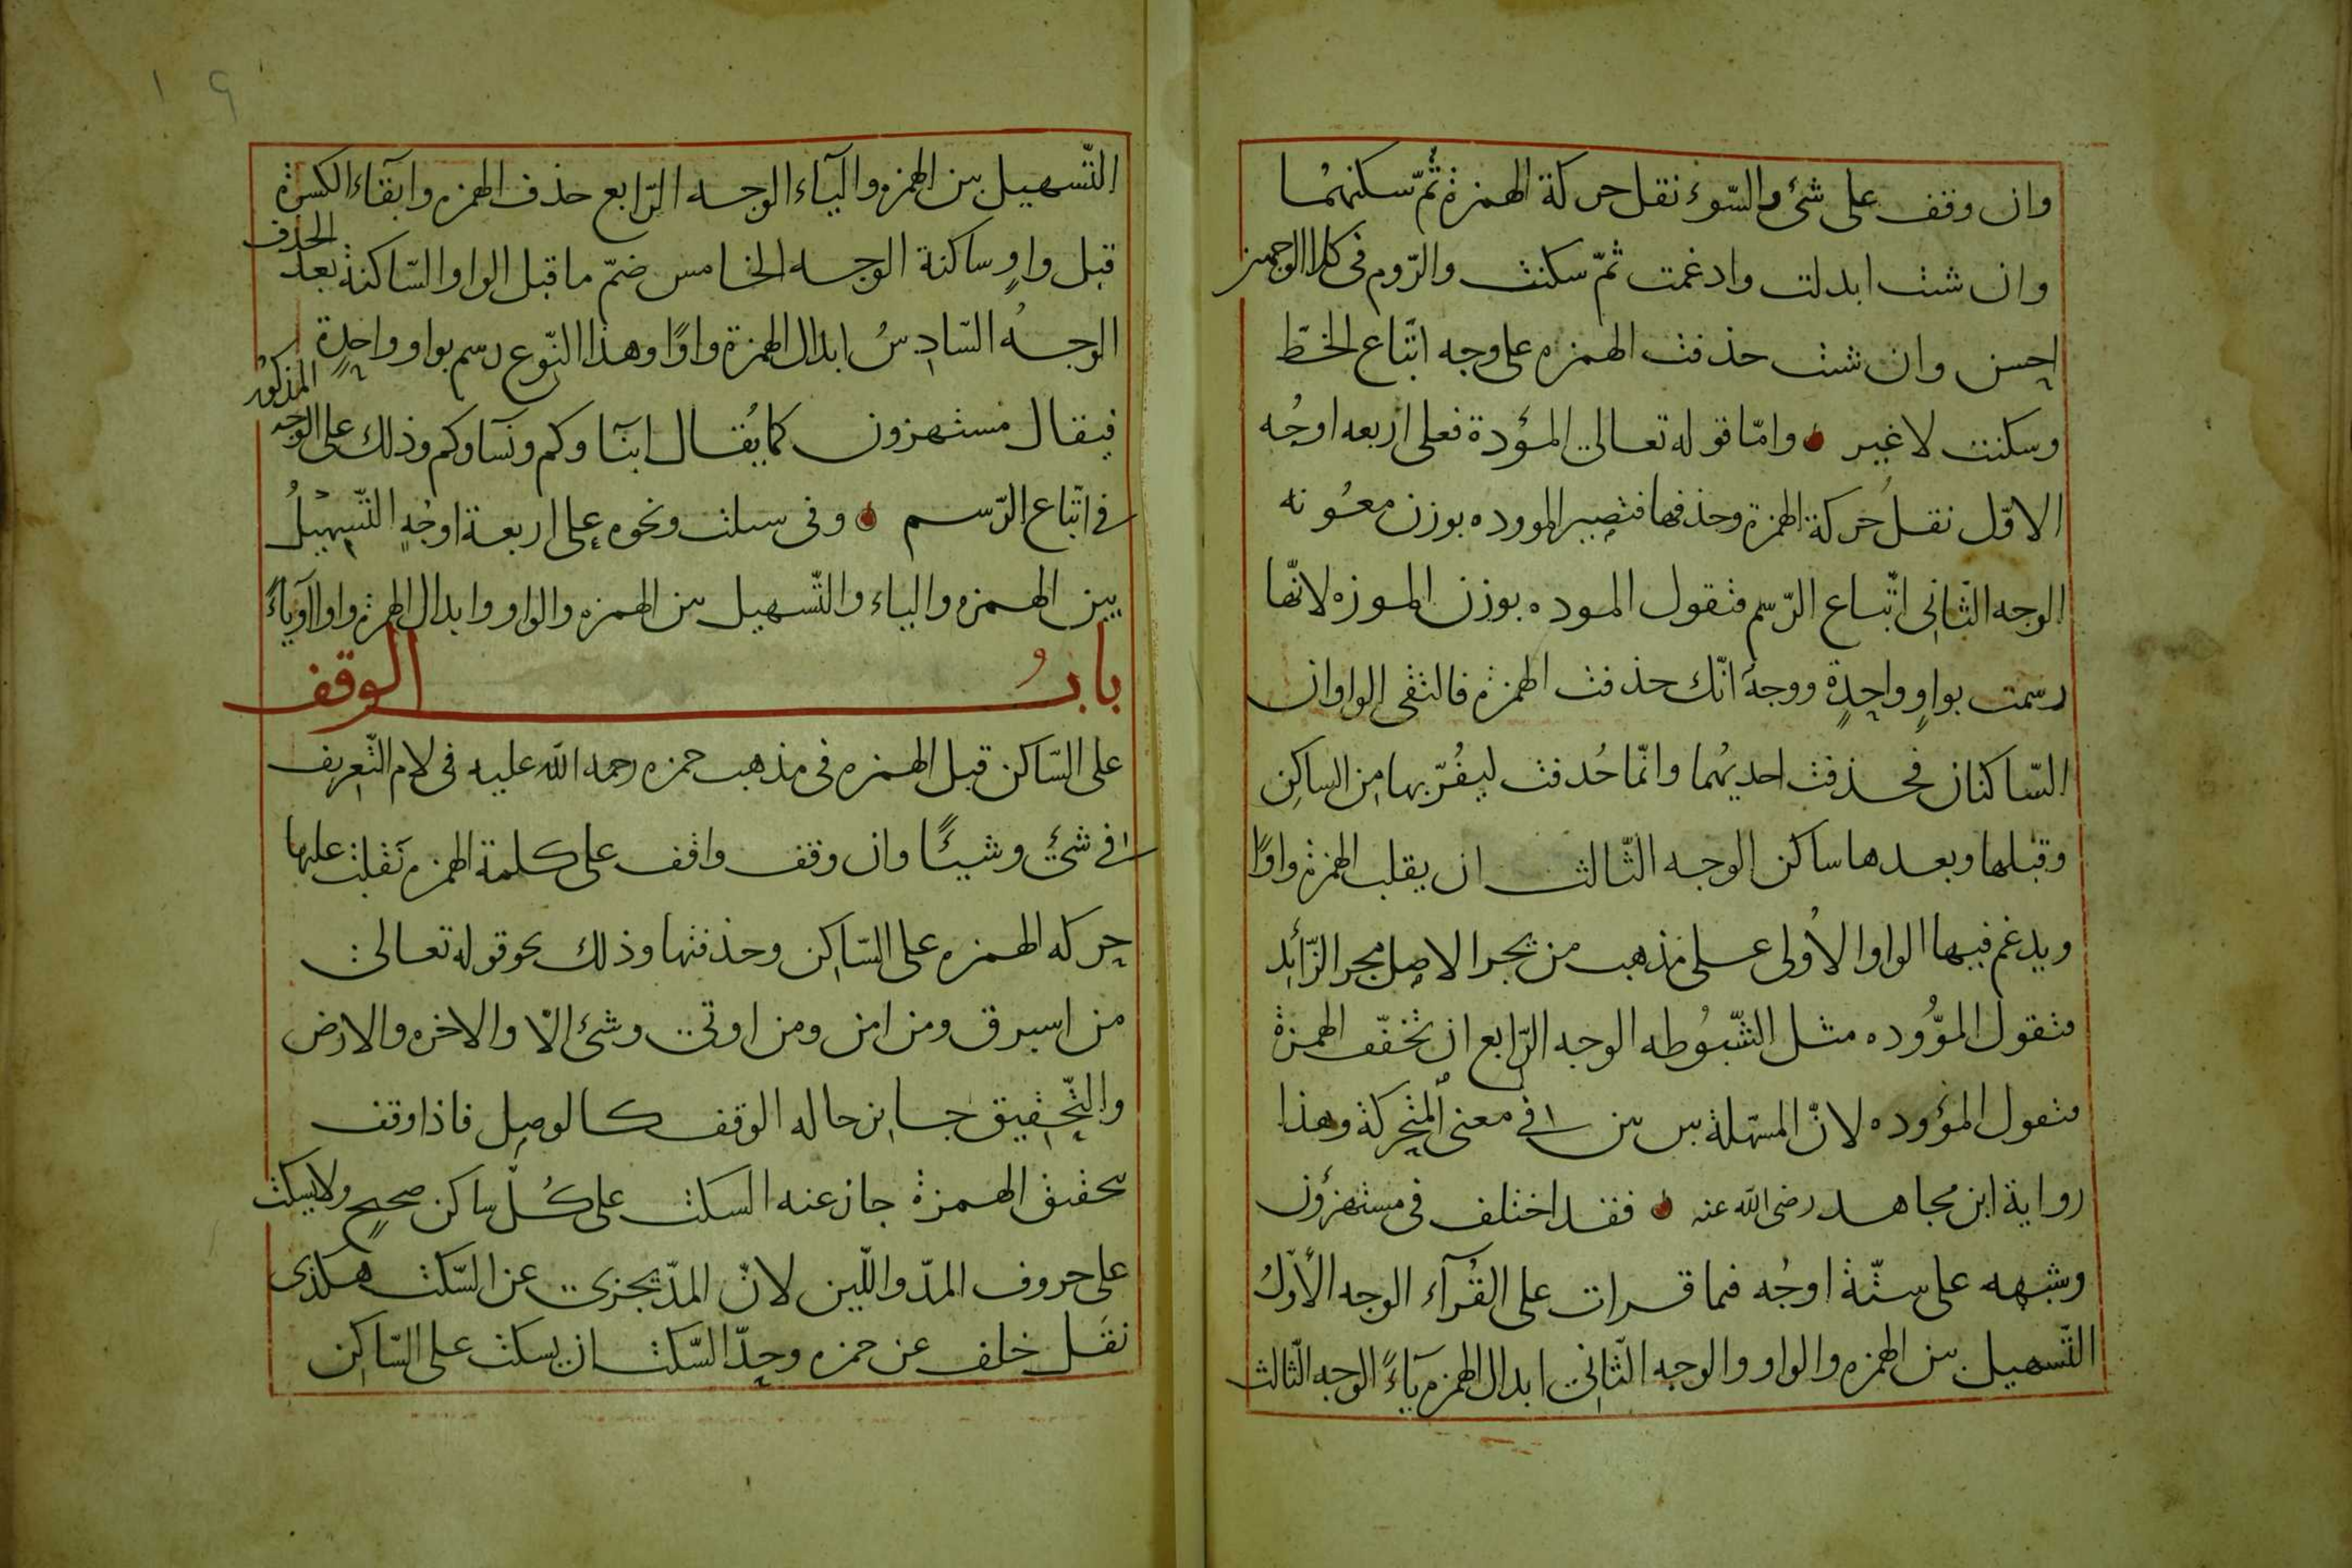 وان وقف على شئ والسّوء نقل حركة الهمزة ثمّ سكنهما
وان شئت ابدلت وادغمت ثمّ سكنت والرّوم فى كلا الوجهين
احسن وان شئت حذفت الهمزه على وجه اتّباع الخطّ
وسكنت لا غير وامّا قوله تعالى المؤدة فعلى اربعه اوجُه
الاوّل نقل حركة الهمزة وحذفها فتصير الموودهٔ بوزن معُونه
الوجه الثّانى اتّباع الرّسم فتقول الموده بوزن الموزه لانّها
رسمت بواوٍ واحدةٍ ووجهُ انّك حذفت الهمزة فالتقى الواوان
السّاكنان فحذفت احديهُما وانّما حُذفت ليفُرّ بها من الساكن
وقبلها وبعدها ساكن الوجه الثّالث ان يقلب الهمزة واوًا
ويدغم فيها الواو الاُولى على مذهب من يجرا الاصل مجر الزّائد
فتقول الموُّوده مثل الشّبُوطه الوجه الرّابع ان تخفّف الهمزة
فتقول المؤوده لانّ المسهّلة بين بين فى معنى المتحركة وهذا
رواية ابن مجاهد رضى الله عنه فقد اختلف فى مستهزؤن
وشبهه على ستّة اوجُه فما قرات على القُرآء الوجه الأوّلُ
التّسهيل بين الهمزه والواو والوجه الثّانى ابدال الهمزة يآءً الوجه الثّالث
التّسهيل بين الهمزه والياء الوجه الرّابع حذف الهمزه وابقاء الكسرة
قبل واوٍ ساكنة الوجه الخامس ضمّ ما قبل الواو السّاكنة بعد الحذف
الوجهُ السّادسُ ابدال الهمزة واوًا وهذا النّوع رسم بواو واحدةٍ
فيقال مستهزون كما يُقال ابنآوكم ونسآوكم وذلك على الوجه المذكور
فى اتّباع الرّسم وفى سىلت ونحوه على اربعة اوجُهٍ التّسهيلُ
بين الهمزه والياء والتّسهيل بين الهمزه والواو وابدال الهمزة واوا اوياءً
بابُ الوقف
على السّاكن قبل الهمزه فى مذهب حمزه رحمه الله عليه فى لام التّعريف
فى شئ وشيئًا وان وقف واقف على كلمة الهمزه نَقلت عليها
حركه الهمزه على السّاكن وحذفتها وذلك نحو قوله تعالى
من استبرق ومن امن ومن اوتى وشئ الّا والاخره والارض
والتّحقيق جايز حاله الوقف كالوصل فاذا وقف
بتحقيق الهمزة جاز عنه السكت على كُلّ ساكن صحيح ولا يسكت
على حروف المدّ واللّين لانّ المدّ يجزى عن السّكت هكذى
نقَل خلف عن حمزه وحدّ السّكت ان يسكت على السّاكن